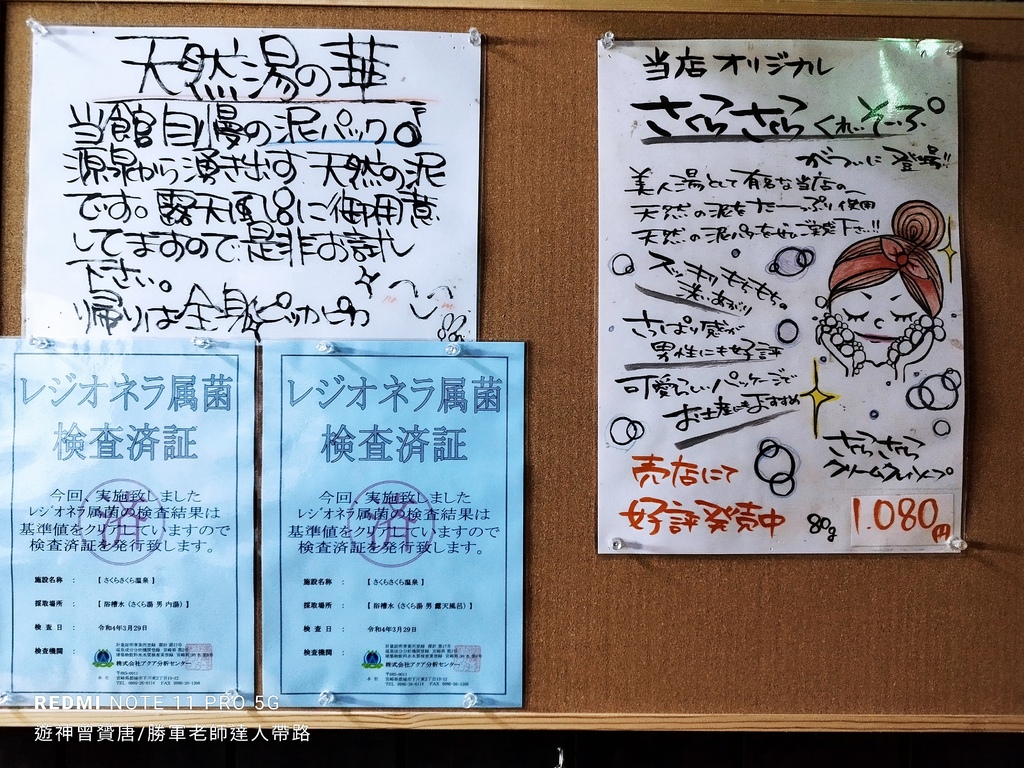 天然湯の華
当館自慢の泥パック♪
源泉から湧き出す天然の泥
です。露天風呂に御用意
してますので是非お試し
下さい。
帰りは全身ピッカピカ
レジオネラ属菌
検査済証
今回、実施致しました
レジオネラ属菌の検査結果は
基準値をクリアしていますので
検査済証を発行致します。
済
施設名称 : 【さくらさくら温泉】
採取場所 : 【浴槽水(さくら湯 男 内湯)】
検査日 : 令和4年3月29日
検査機関 :
株式会社アクア分析センター
レジオネラ属菌
検査済証
今回、実施致しました
レジオネラ属菌の検査結果は
基準値をクリアしていますので
検査済証を発行致します。
済
施設名称 : 【さくらさくら温泉】
採取場所 : 【浴槽水(さくら湯 男 露天風呂)】
検査日 : 令和4年3月29日
検査機関 :
株式会社アクア分析センター
当店オリジナル
さくらさくらくれぃそーぷ
がついに登場!!
美人湯として有名な当店の
天然の泥をたーっぷり使用
天然の泥パックをぜひご実感下さい!!
スッキリもちもち。
洗いあがり
さっぱり感が
男性にも好評
可愛らしいパッケージで
お土産にもおすすめ
さくらさくら
クリームクレイソープ
売店にて
好評発売中
80g
1.080円
REDMI NOTE 11 PRO 5G
遊神曾贇唐/勝軍老師達人帶路